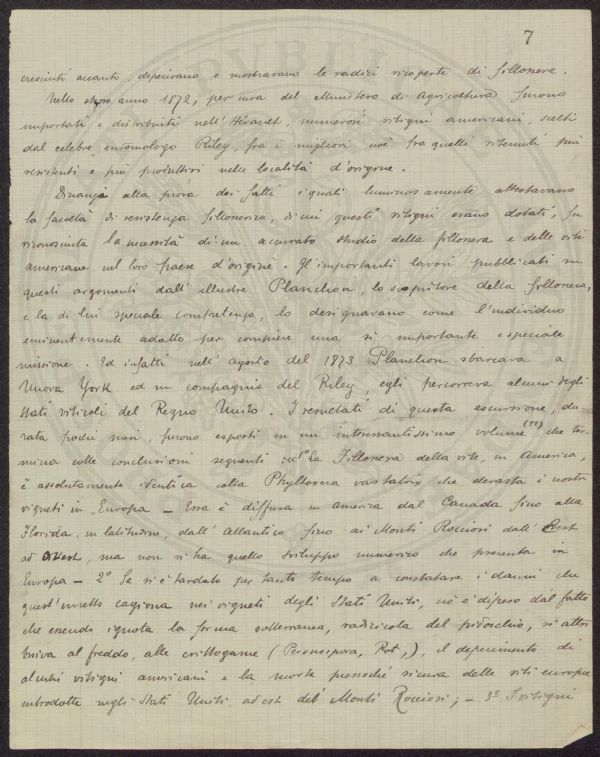 7
cresciuti accanto, deperivano e mostravano le radici ricoperte di fillossere.
Nello stesso anno 1872, per cura del Ministero di Agricoltura furono
importati e distribuiti nell'Hérault, numerosi vitigni americani, scelti
dal celebre entomologo Riley, fra i migliori cioè fra quelli ritenuti più
resistenti e più produttivi nelle località d'origine.
Dinanzi alla prova dei fatti i quali luminosamente attestavano
la facoltà di resistenza fillosserica, di cui questi vitigni erano dotati, fu
riconosciuta la necessità di un accurato studio della fillossera e delle viti
americane nel loro paese d'origine. Gl'importanti lavori pubblicati su
questi argomenti dall'illustre Planchon, lo scopritore della fillossera,
e la di lui speciale competenza, lo designavano come l'individuo
eminentemente adatto per compiere una sì importante e speciale
missione. Ed infatti nell'agosto del 1873 Planchon sbarcava a
Nuova York ed in compagnia del Riley, egli percorreva alcuni degli
Stati viticoli del Regno Unito. I resultati di questa escursione, du-
rata pochi mesi, furono esposti in un interessantissimo volume che ter-
mina colle conclusioni seguenti: 1° La Fillossera della vite, in America,
è assolutamente identica alla Phylloxera vastatrix che devasta i nostri
vigneti in Europa - Essa è diffusa in America dal Canada fino alla
Florida, in latitudine, dall'Atlantico fino ai Monti Rocciosi dall'Est
ad Ovest, ma non si ha quello sviluppo numerico che presenta in
Europa - 2° Se si è tardato per tanto tempo a constatare i danni che
quest'insetto cagiona nei vigneti degli Stati Uniti, ciò è dipeso dal fatto
che essendo ignota la forma sotterranea, radicicola del pidocchio, si attri
buiva al freddo, alle crittogame (Peronospora, Rot,), il deperimento di
alcuni vitigni americani e la morte pressoché sicura delle viti europee
introdotte negli Stati Uniti ad est dei Monti Rocciosi; - 3° I vitigni